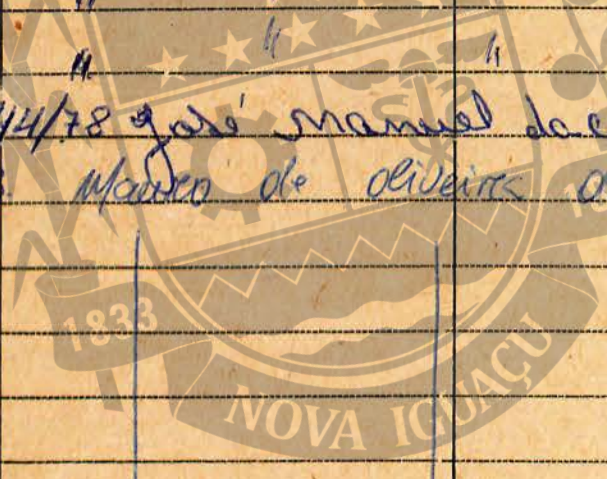 "
" "
44/78 José Manuel da c
Mauro de oliveira d
1833
NOVA IGUAÇU